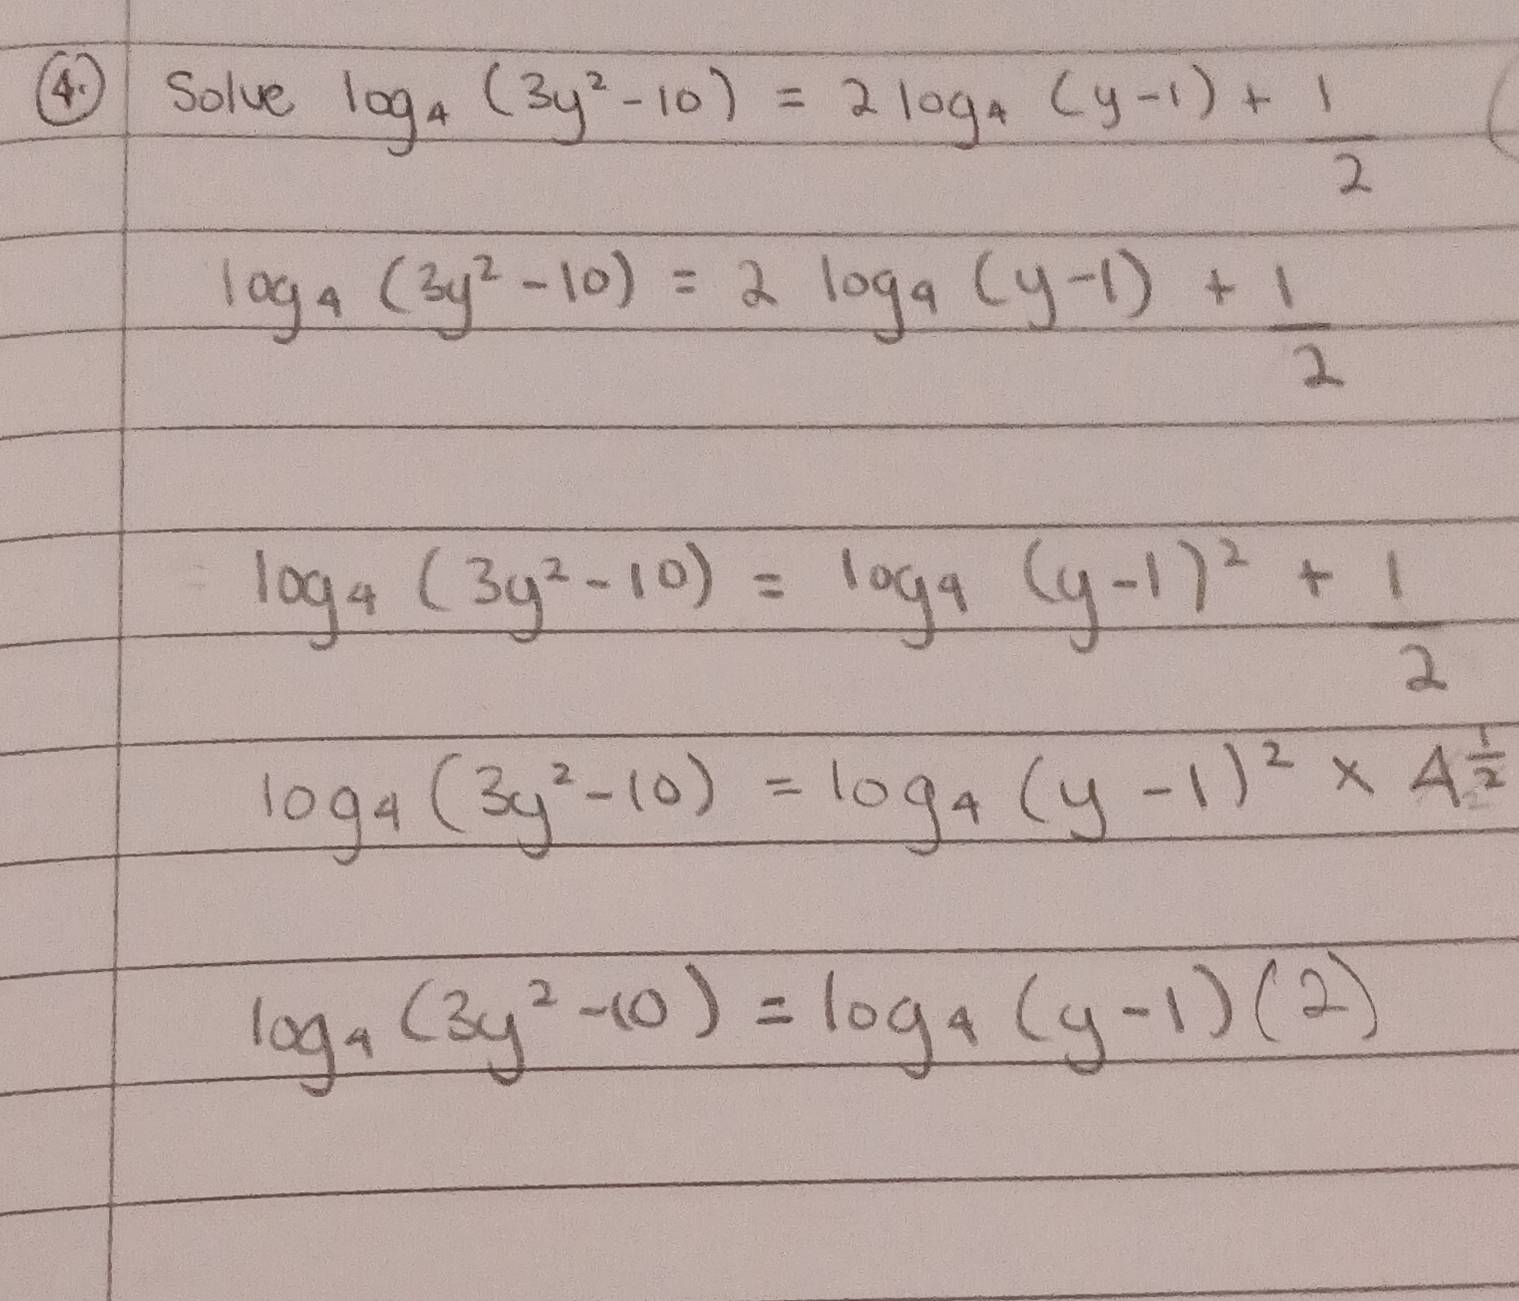 4. Solve log₄ (3y² - 10) = 2 log₄ (y - 1) + 1/2
log₄ (3y² - 10) = 2 log₄ (y - 1) + 1/2
log₄ (3y² - 10) = log₄ (y - 1)² + 1/2
log₄ (3y² - 10) = log₄ (y - 1)² × 4^(1/2)
log₄ (3y² - 10) = log₄ (y - 1)(2)